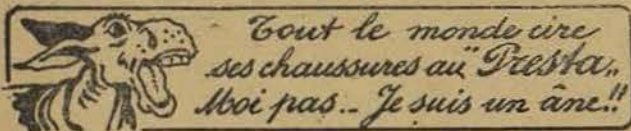 Tout le monde cire
ses chaussures au "Presta„
Moi pas.. Je suis un âne!!